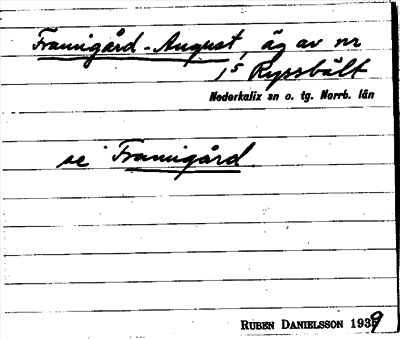 Framigård-August, äg av nr
1⁵ Ryssbält
Nederkalix sn o. tg. Norrb. län
se Framigård
RUBEN DANIELSSON 1939